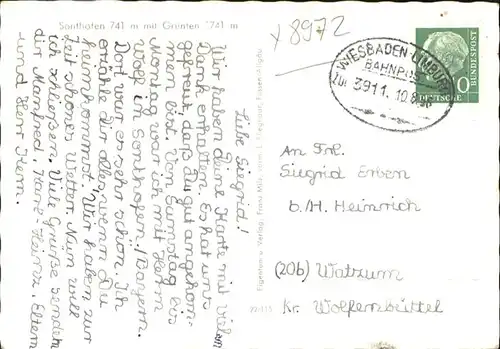 Sonthofen 741 m mit Grünten 1741 m
x 8972
Liebe Siegrid!
Wir haben Deine Karte mit vielem
Dank erhalten. Es hat uns
gefreut, daß Du gut angekom-
men bist. Von Samstag bis
Montag war ich mit Herrn
Wolf in Sonthofen/Bayern.
Dort war es sehr schön. Ich
erzähle Dir alles, wenn Du
heimkommst! Wir haben zur
Zeit schönes Wetter. Nun will
ich schließen. Viele Grüße senden
dir Manfred, Karl-Heinz, Eltern
und Herr Kern.
Eigentum u. Verlag, Franz Milz,
22/113
WIESBADEN-LIMBURG
BAHNPOST
Zug 3911 10.8.
10
DEUTSCHE
BUNDESPOST
An Frl.
Siegrid Erben
b./H. Heinrich
(20b) Watzum
Kr. Wolfenbüttel